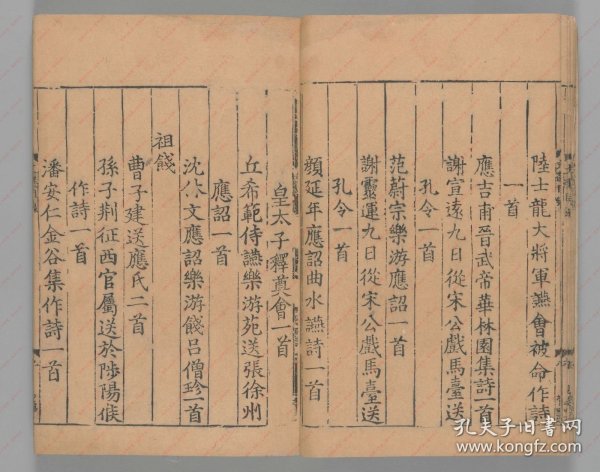 陸士龍大將軍讌會被命作詩
一首
應吉甫晉武帝華林園集詩一首
謝宣遠九日從宋公戲馬臺送
孔令一首
范蔚宗樂游應詔一首
謝靈運九日從宋公戲馬臺送
孔令一首
顏延年應詔曲水讌詩一首
皇太子釋奠會一首
丘希範侍讌樂游苑送張徐州
應詔一首
沈休文應詔樂游餞呂僧珍一首
祖餞
曹子建送應氏二首
孫子荆征西官屬送於陟陽候
作詩一首
潘安仁金谷集作詩一首
孔夫子旧书网
www.kongfz.com